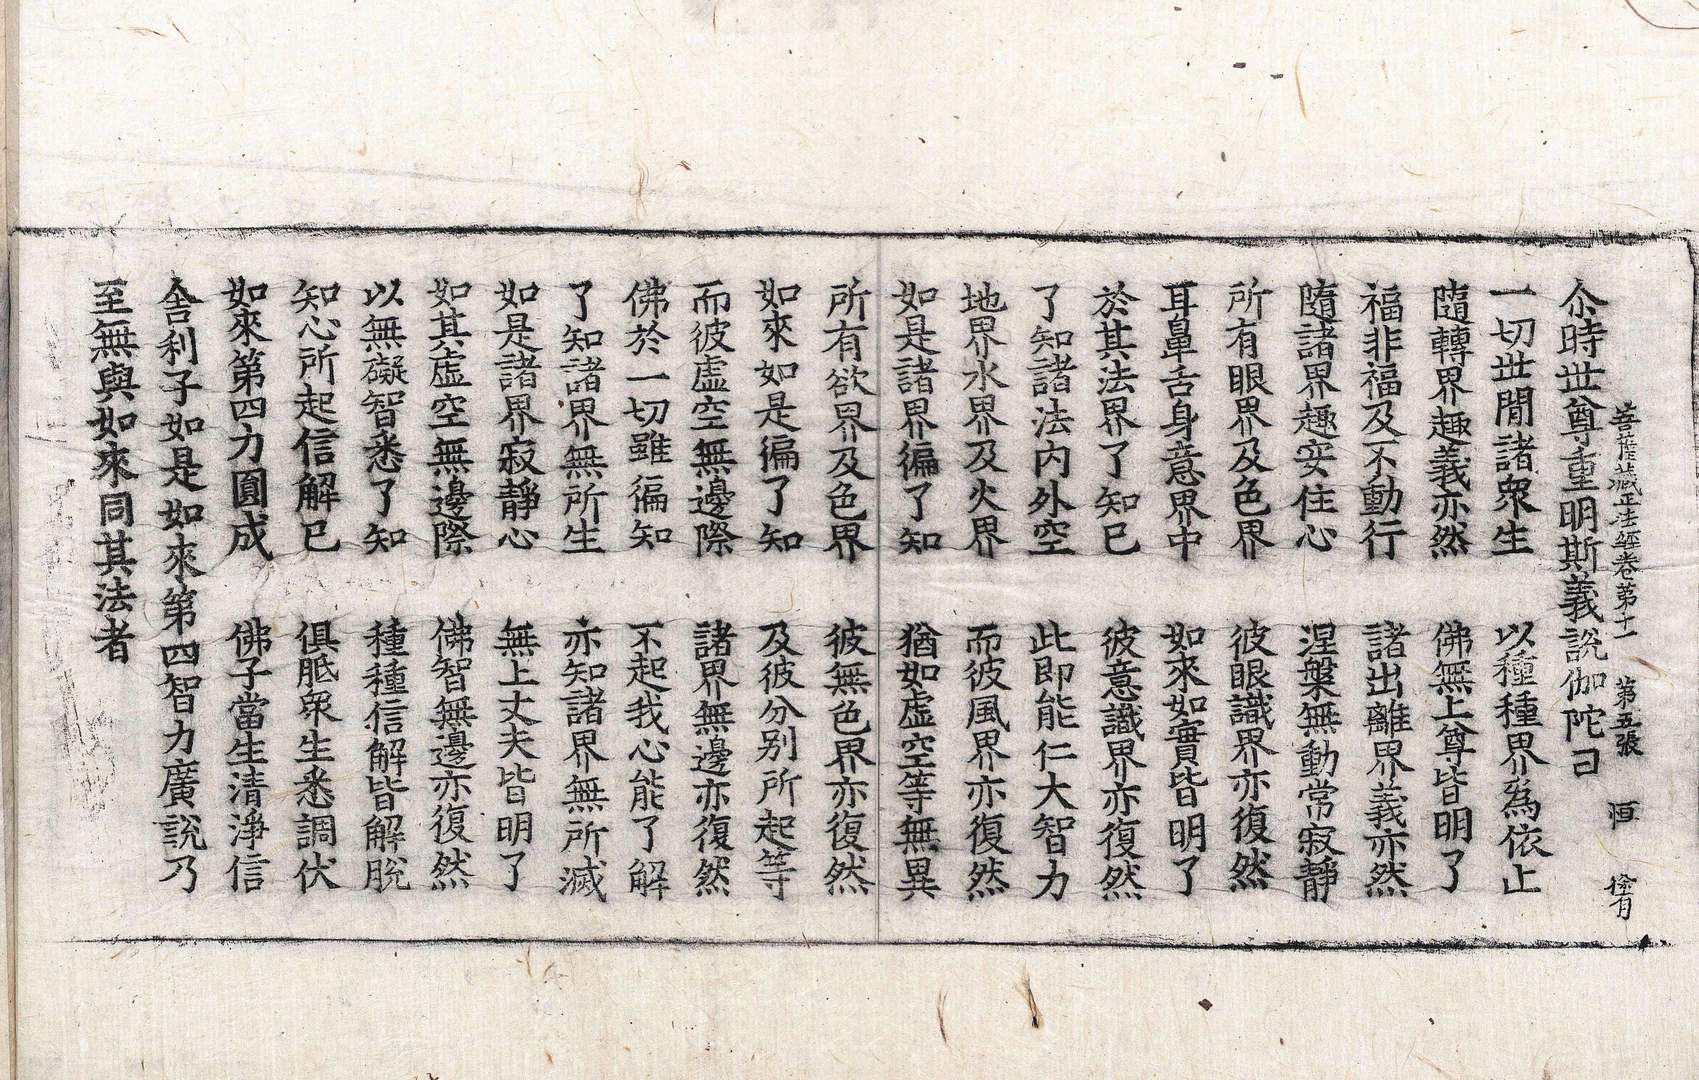 菩薩藏正法經卷第十一 第五張 恒
尒時世尊重明斯義說伽陀曰
一切世間諸衆生 以種種界爲依止
隨轉界趣義亦然 佛無上尊皆明了
福非福及不動行 諸出離界義亦然
隨諸界趣安住心 涅槃無動常寂靜
所有眼界及色界 彼眼識界亦復然
耳鼻舌身意界中 如來如實皆明了
於其法界了知已 彼意識界亦復然
了知諸法内外空 此即能仁大智力
地界水界及火界 而彼風界亦復然
如是諸界徧了知 猶如虛空等無異
所有欲界及色界 彼無色界亦復然
如來如是徧了知 及彼分别所起等
而彼虛空無邊際 諸界無邊亦復然
佛於一切雖徧知 不起我心能了解
了知諸界無所生 亦知諸界無所滅
如是諸界寂靜心 無上丈夫皆明了
如其虛空無邊際 佛智無邊亦復然
以無礙智悉了知 種種信解皆解脫
知心所起信解已 俱胝衆生悉調伏
如來第四力圓成 佛子當生清淨信
舍利子如是如來第四智力廣說乃
至無與如來同其法者